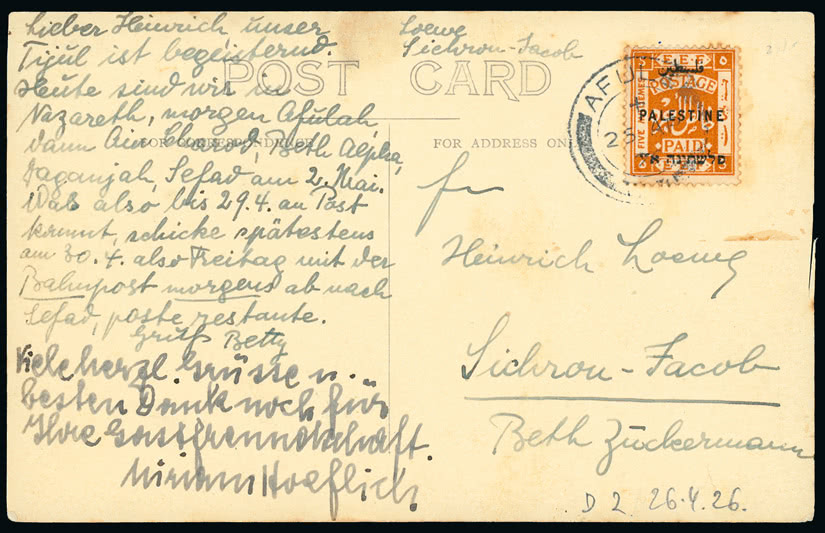 Lieber Heinrich unser
Tijul ist begeisternd.
Heute sind wir in
Nazareth, morgen Afulah,
dann Ain Charod, Beth Alpha,
Daganjah, Sefad am 2. Mai.
Was also bis 29.4. an Post
kommt, schicke spätestens
am 30.4. also Freitag mit der
Bahnpost morgens ab nach
Sefad, poste restante.
Gruß Betty
Viele herzl. Grüsse u.
besten Dank noch für
Ihre Gastfreundschaft.
Miriam Hoeflich.
Loewe
Sichron-Jacob
POST CARD
FOR CORRESPONDENCE
FOR ADDRESS ONLY
AFUL
POSTAGE
فلسطين
PALESTINE
FIVE
PAID
פלשתינה א״י
Heinrich Loewe
Sichron-Jacob
Beth Zuckermann
D 2 26.4.26.